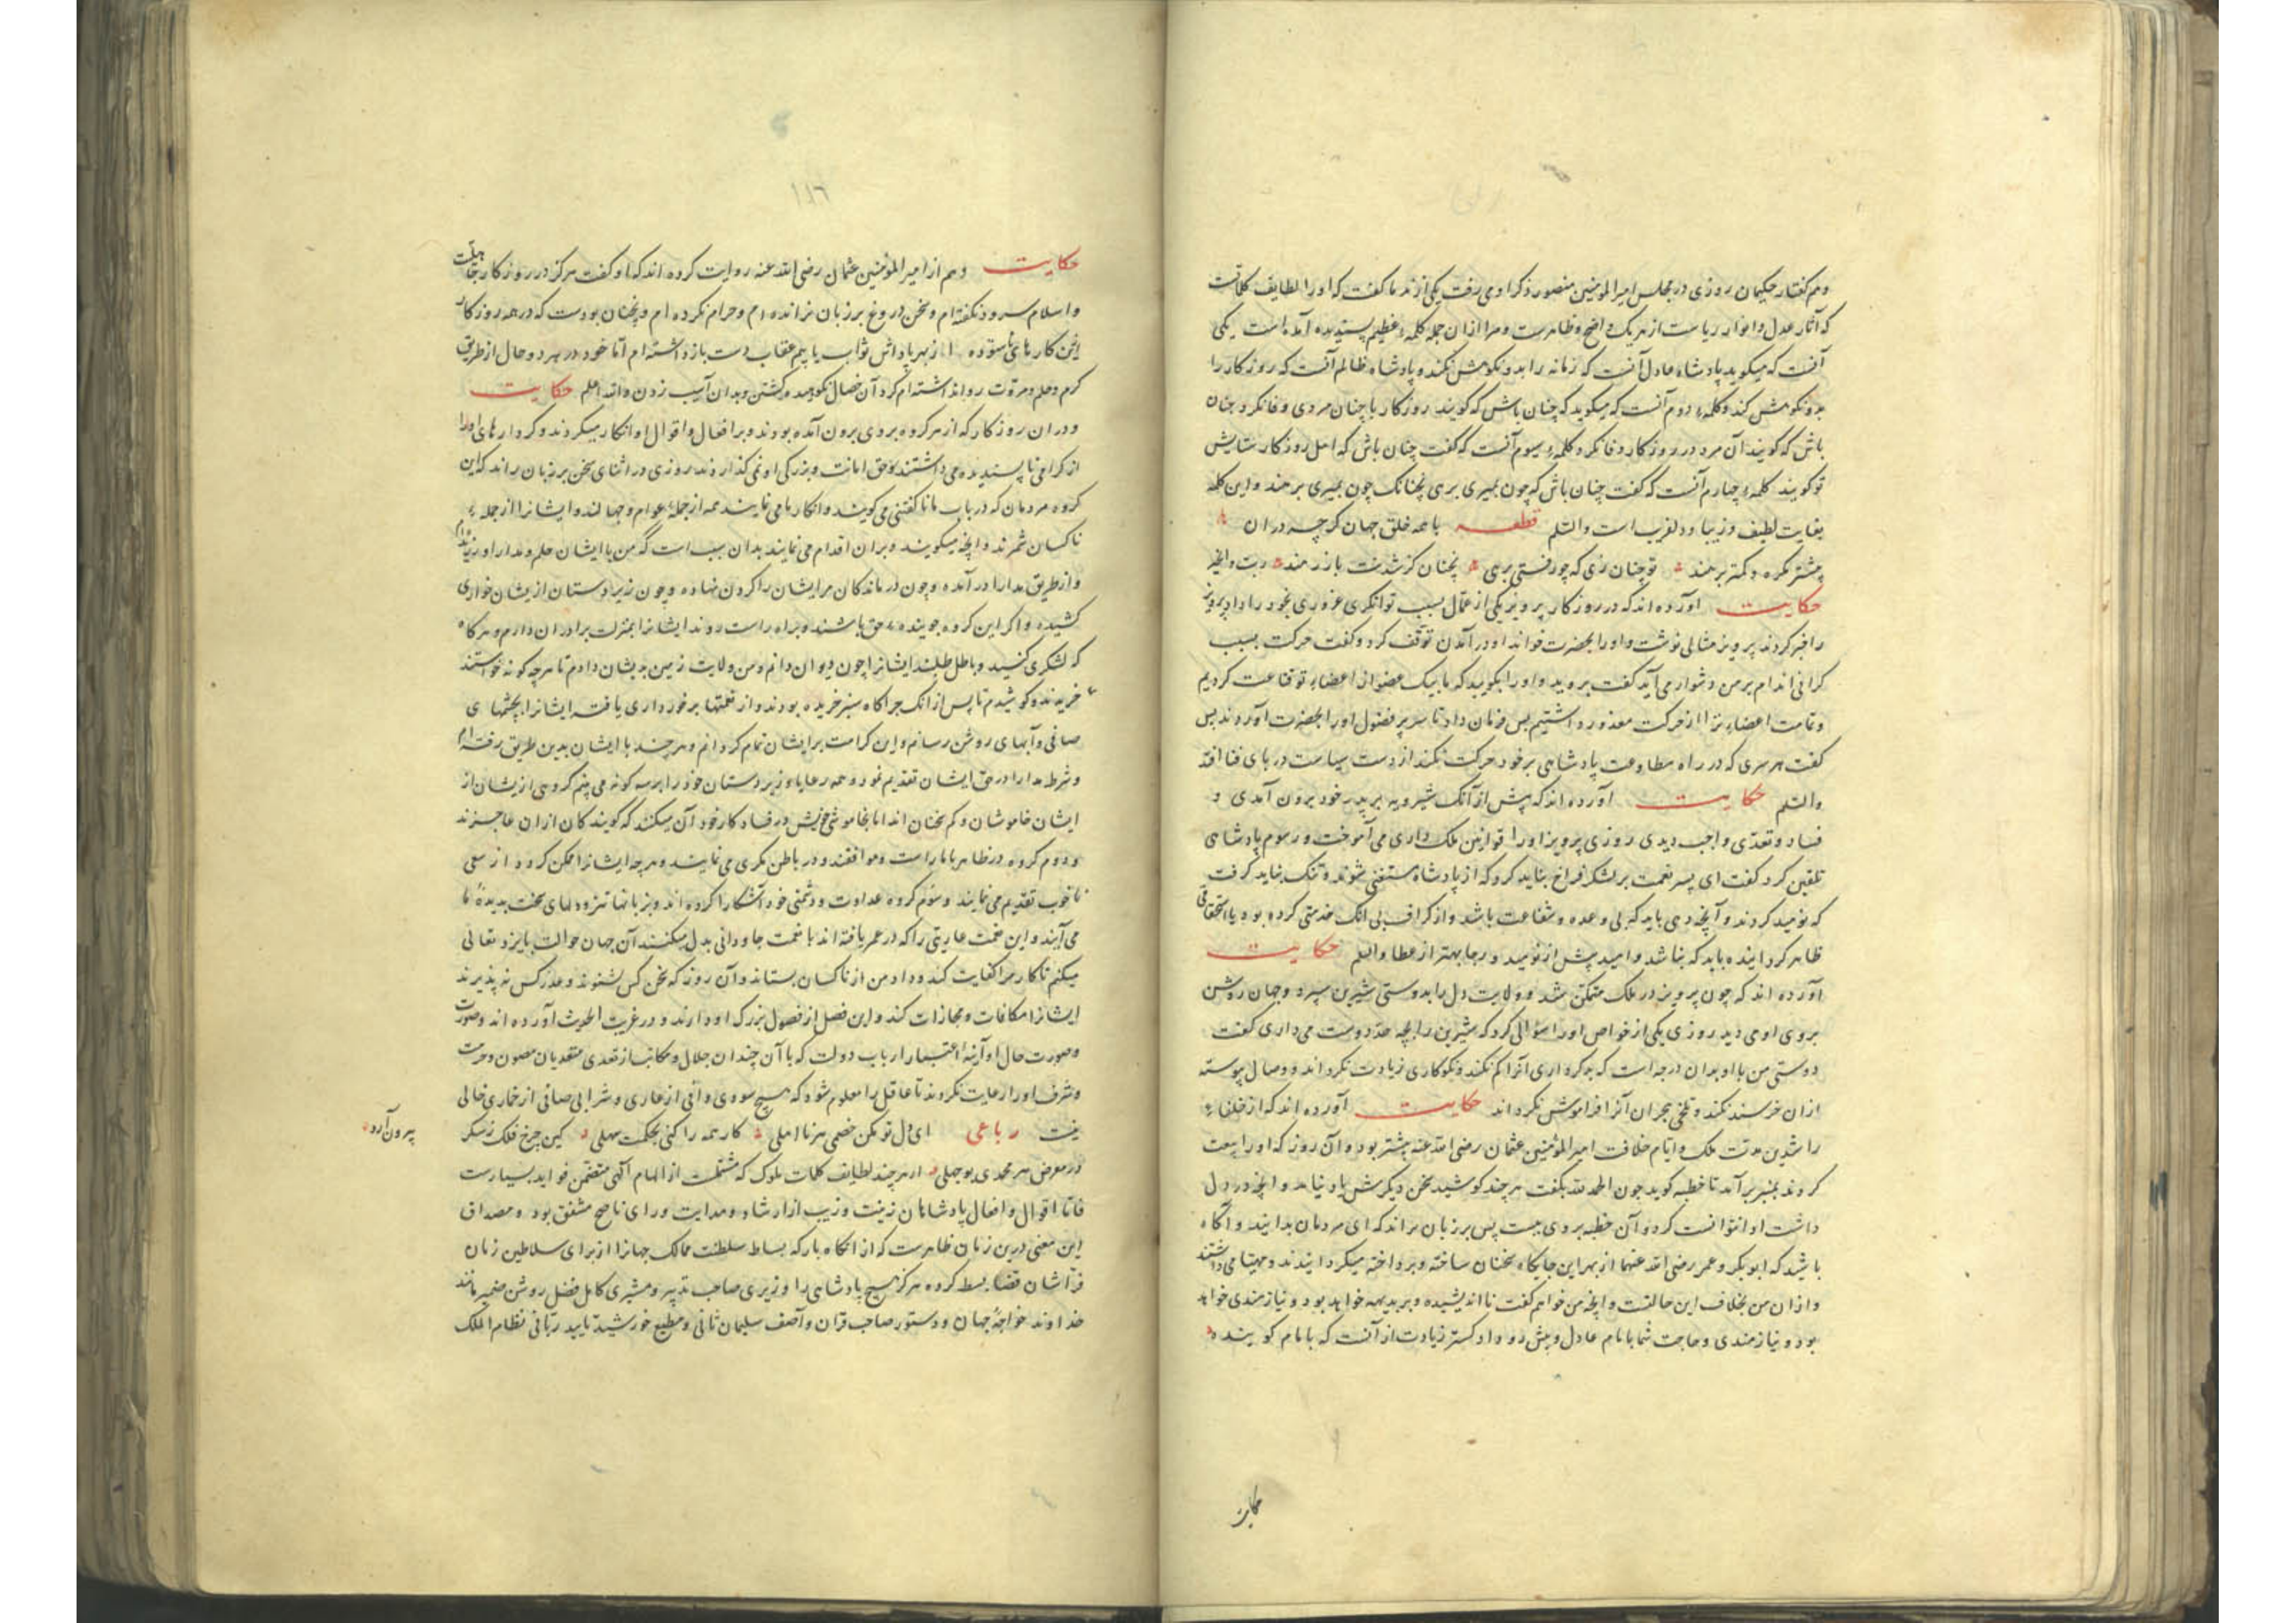 وهم گفتار حکیمان روزی در مجلس امیرالمؤمنین منصور ذکر او می رفت یکی از ندما گفت که او را لطایف کلماتست
که آثار عدل و انوار ریاست از هر یک واضح و ظاهرست و مرا از ان جمله کلمهٔ عظیم پسندیده آمده است یکی
آنست که میگوید پادشاه عادل آنست که زمانه را بد و نکوهش نکند و پادشاه ظالم آنست که روزکار را
بد و نکوهش کند و کلمهٔ دوم آنست که میگوید که چنان باش که گویند روزکار با چنان مردی وفا نکرد چنان
باش که گویند آن مرد در روزکار وفا نکرد کلمهٔ سیوم آنست که گفت چنان باش که اهل روزکار ستایش
تو گویند کلمهٔ چهارم آنست که گفت چنان باش که چون بمیری برهی نچنانک چون بمیری برهند و این کلمه
بغایت لطیف و زیبا و دلفریب است والسلم قطعه با همه خلق جهان گرچه دران
بیشتر گمره و کمتر برهند تو چنان زی که چو رفتی برهی نچنان کز شدنت باز رهند
حکایت آورده اند که در روزکار پرویز یکی از عمال بسبب توانگری غروری بخود راه داد پرویز
را خبر کردند پرویز مثالی نوشت و او را بحضرت خواند او در آمدن توقف کرد و گفت حرکت بسبب
گرانی اندام بر من دشوار می آید گفت بروید و او را بگویید که ما بیک عضو از اعضاء تو قناعت کردیم
و تمامت اعضاء ترا از حرکت معذور داشتیم پس فرمان داد تا سر پر فضول او را بحضرت آوردند پس
گفت هر سری که در راه مطاوعت پادشاهی بر خود حرکت نکند از دست سیاست در پای فنا افتد
والسلم حکایت آورده اند که پیش از آنک شیرویه بر پدر خود بیرون آمدی و
فساد و تعدی واجب دیدی روزی پرویز او را قوانین ملک داری می آموخت و رسوم پادشاهی
تلقین کرد گفت ای پسر نعمت بر لشکر فراخ نباید کرد که از پادشاه مستغنی شوند و تنک نباید گرفت
که نومید گردند و آنچه دهی باید که بی وعده و شفاعت باشد و از گزاف بی آنک خدمتی کرده بود یا استحقاقی
ظاهر گردانیده باید که نباشد و امید بیش از نومید و رجا بهتر از عطا والسلم حکایت
آورده اند که چون پرویز در ملک متمکن شد و ولایت دل را بدوستی شیرین سپرد و جهان روشن
بروی او می دید روزی یکی از خواص او را سؤالی کرد که شیرین را بچه حد دوست می داری گفت
دوستی من با او بدان درجه است که بدکرداری آنرا کم نکند و نکوکاری زیادت نگرداند و وصال پیوسته
ازان خرسند نکند و تلخی هجران آنرا فراموش نگرداند حکایت آورده اند که از خلفاء
راشدین مدت ملک و ایام خلافت امیرالمؤمنین عثمان رضی الله عنه بیشتر بود و آن روز که او را بیعت
کردند بمنبر برآمد تا خطبه گوید چون الحمد لله بگفت هر چند کوشید سخن دیگرش یاد نیامد و آنچه در دل
داشت ادا نتوانست کرد و آن خطبه بروی ببست پس بر زبان راند که ای مردمان بدانید و آگاه
باشید که ابوبکر و عمر رضی الله عنهما از بهر این جایگاه سخنان ساخته و پرداخته میگردانیدند و مهیا می داشتند
و ازان من بخلاف این حالتست و آنچه من خواهم گفت نا اندیشیده و بر بدیهه خواهد بود و نیازمندی خواهد
بود و نیازمندی و حاجت شما بامام عادل و پیش رو دادگستر زیادت از آنست که بامام گوینده
حکایت
۱۱۶
حکایت وهم از امیرالمؤمنین عثمان رضی الله عنه روایت کرده اند که او گفت هرگز در روزکار جاهلیت
و اسلام سرود نگفته ام و سخن دروغ بر زبان نرانده ام و حرام نکرده ام و نچنان بودست که در همه روزکار
این کارهای ناستوده از بهر پاداش ثواب یا بیم عقاب دست باز داشته ام اما خود در هر دو حال از طریق
کرم و حلم و مروت روا نداشته ام گرد آن خصال نکوهیده گشتن و بدان آسیب زدن والله اعلم حکایت
و دران روزکار که از هر گروه بروی برون آمده بودند و بر افعال و اقوال او انکار میکردند و کردارهای او را
از گرامی ناپسندیده می داشتند و حق امانت و بزرگی او نمی گذاردند روزی در اثنای سخن بر زبان راند که این
گروه مردمان که در باب ما ناگفتنی می گویند و انکارها می نمایند همه از جملهٔ عوام و جهالند و ایشانرا از جملهٔ
ناکسان شمرند و آنچه میگویند و بران اقدام می نمایند بدان سبب است که من با ایشان حلم و مدارا ورزیده ام
و از طریق مدارا در آمده و چون درماندگان مر ایشان را گردن نهاده و چون زیردستان از یشان خواری
کشیده و اگر این گروه جوینده حق باشند و براه راست روند ایشانرا بمنزلت برادران دارم و هرگاه
که لشکری کنند و باطل طلبند ایشانرا چون دیوان دانم و من ولایت زمین بدیشان دادم تا هر چه گونه خواستند
خریدند و کوشیدم تا پس از انک چراگاه سبز خریده بودند و از نعمتها برخورداری یافته ایشانرا بچشمهای
صافی و آبهای روشن رسانم و این کرامت بر ایشان تمام گردانم و هر چند با ایشان بدین طریق رفته ام
و شرط مدارا در حق ایشان تقدیم نمود و همه رعایا و زیردستان خود را بر سه گونه می بینم گروهی از یشان از
ایشان خاموشان و کم سخنان اند اما بخاموشی خویش در فساد کار خود آن میکنند که گویندگان ازان عاجزند
و دوم گروه در ظاهر با ما راست و موافقند و در باطن مکری می نمایند و هر چه ایشانرا ممکن گردد از سعی
ناخوب تقدیم می نمایند و سوم گروه عداوت و دشمنی خود آشکارا کرده اند و بزبانها تیز و دلهای سخت پدید
می آیند و این نعمت عاریتی را که در عمر یافته اند با نعمت جاودانی بدل میکنند آن جهان حوالت بایزد تعالی
میکنم تا کار مرا کفایت کند و داد من از ناکسان بستاند و آن روز که سخن کس نشنوند و عذر کس نپذیرند
ایشانرا مکافات و مجازات کند و این فصل از فصول بزرگ او دارند و در غریب الحدیث آورده اند و صورت
و صورت حال او آینهٔ اعتبار ارباب دولت که با آن چندان جلال و مکانت از تعدی متعدیان مصون و حرمت
و شرف او را رعایت نکردند تا عاقل را معلوم شود که هیچ سودی وافی از عاری و شرابی صافی از خماری خالی
نیست رباعی ای دل تو مکن خصمی هر نا اهلی کار همه را کنی بحکمت سهلی کین چرخ فلک ز مکر
بیرون آرد
در معرض هر محمدی بوجهلی هر چند لطایف کلمات ملوک که مشتملست از الهام الهی متضمن فواید بسیارست
فاتا اقوال و افعال پادشاهان زینت و زیب از ارشاد و هدایت و رای ناصح مشفق بود و مصداق
این معنی درین زمان ظاهرست که از انگاه باز که بساط سلطنت ممالک جهانرا از برای سلاطین زمان
فراشان قضا بسط کرده هرگز هیچ پادشاهی را وزیری صاحب تدبیر و مشیری کامل فضل روشن ضمیر مانند
خداوند خواجهٔ جهان و دستور صاحب قران و آصف سلیمان ثانی و مطیع خورشید تایید ربانی نظام الملک